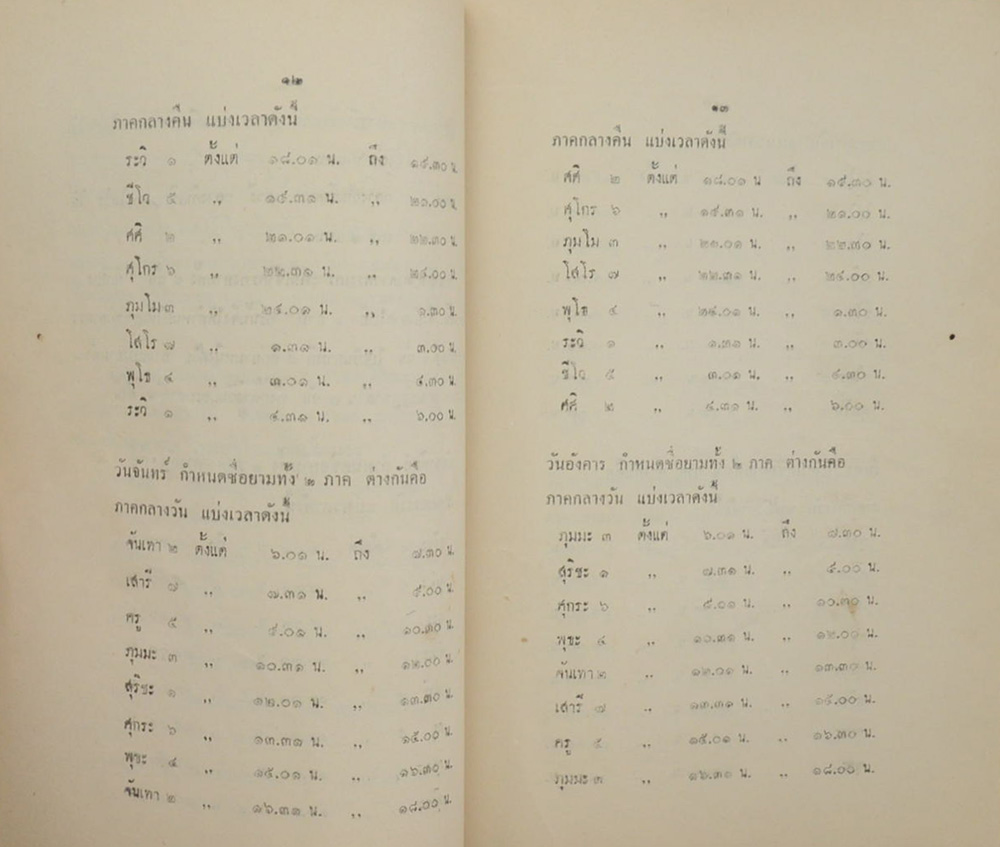 ๑๒
ภาคกลางคืน แบ่งเวลาดังนี้
ระวิ ๑ ตั้งแต่ ๑๘.๐๑ น. ถึง ๑๙.๓๐ น
ชีโว ๕ ,, ๑๙.๓๑ น. ,, ๒๑.๐๐ น.
ศศิ ๒ ,, ๒๑.๐๑ น. ,, ๒๒.๓๐ น.
ศุโกร ๖ ,, ๒๒.๓๑ น. ,, ๒๔.๐๐ น.
ภุมโม ๓ ,, ๒๔.๐๑ น. ,, ๑.๓๐ น.
โสโร ๗ ,, ๑.๓๑ น. ,, ๓.๐๐ น.
พุโธ ๔ ,, ๓.๐๑ น. ,, ๔.๓๐ น.
ระวิ ๑ ,, ๔.๓๑ น. ,, ๖.๐๐ น.
วันจันทร์ กำหนดชื่อยามทั้ง ๒ ภาค ต่างกันคือ
ภาคกลางวัน แบ่งเวลาดังนี้
จันเทา ๒ ตั้งแต่ ๖.๐๑ น. ถึง ๗.๓๐ น.
เสารี ๗ ,, ๗.๓๑ น. ,, ๙.๐๐ น.
ครู ๕ ,, ๙.๐๑ น. ,, ๑๐.๓๐ น.
ภุมมะ ๓ ,, ๑๐.๓๑ น. ,, ๑๒.๐๐ น.
สุริชะ ๑ ,, ๑๒.๐๑ น. ,, ๑๓.๓๐ น.
ศุกระ ๖ ,, ๑๓.๓๑ น. ,, ๑๕.๐๐ น.
พุชะ ๔ ,, ๑๕.๐๑ น. ,, ๑๖.๓๐ น.
จันเทา ๒ ,, ๑๖.๓๑ น. ,, ๑๘.๐๐ น.
๑๓
ภาคกลางคืน แบ่งเวลาดังนี้
ศศิ ๒ ตั้งแต่ ๑๘.๐๑ น ถึง ๑๙.๓๐ น.
ศุโกร ๖ ,, ๑๙.๓๑ น. ,, ๒๑.๐๐ น.
ภุมโม ๓ ,, ๒๑.๐๑ น. ,, ๒๒.๓๐ น.
โสโร ๗ ,, ๒๒.๓๑ น. ,, ๒๔.๐๐ น.
พุโธ ๔ ,, ๒๔.๐๑ น. ,, ๑.๓๐ น.
ระวิ ๑ ,, ๑.๓๑ น. ,, ๓.๐๐ น.
ชีโว ๕ ,, ๓.๐๑ น. ,, ๔.๓๐ น.
ศศิ ๒ ,, ๔.๓๑ น. ,, ๖.๐๐ น.
วันอังคาร กำหนดชื่อยามทั้ง ๒ ภาค ต่างกันคือ
ภาคกลางวัน แบ่งเวลาดังนี้
ภุมมะ ๓ ตั้งแต่ ๖.๐๑ น. ถึง ๗.๓๐ น.
สุริชะ ๑ ,, ๗.๓๑ น. ,, ๙.๐๐ น.
ศุกระ ๖ ,, ๙.๐๑ น. ,, ๑๐.๓๐ น.
พุชะ ๔ ,, ๑๐.๓๑ น. ,, ๑๒.๐๐ น.
จันเทา ๒ ,, ๑๒.๐๑ น. ,, ๑๓.๓๐ น.
เสารี ๗ ,, ๑๓.๓๑ น. ,, ๑๕.๐๐ น.
ครู ๕ ,, ๑๕.๐๑ น. ,, ๑๖.๓๐ น.
ภุมมะ ๓ ,, ๑๖.๓๑ น. ,, ๑๘.๐๐ น.